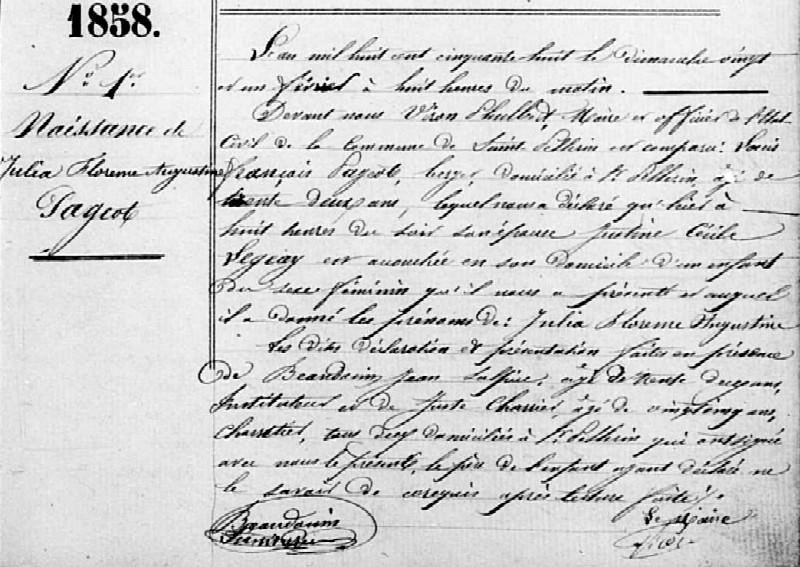 1858.
N.° 1er
Naissance de
Julia Florence Augustine
Pageot
L'an mil huit cent cinquante huit le dimanche vingt
et un février à huit heures du matin.
Devant nous Viron Philbert, Maire et officier de l'Etat
Civil de la Commune de Saint Pellerin est comparu: Louis
François Pageot, berger, domicilié à St Pellerin, âgé de
trente deux ans, lequel nous a déclaré qu'hier à
huit heures du soir son épouse Justine Cécile
Legeay est accouchée en son domicile d'un enfant
du sexe féminin qu'il nous a présenté et auquel
il a donné les prénoms de: Julia Florence Augustine
Les dits déclaration et présentation faites en présence
de Beaudouin Jean, âgé de trente deux ans,
Instituteur et de Juste Charrier, âgé de vingt cinq ans,
Charretier, tous deux domiciliés à St Pellerin qui ont signé
avec nous le présent, le père de l'enfant ayant déclaré ne
le savoir de ce requis après lecture faite.
Beaudouin
Le Maire